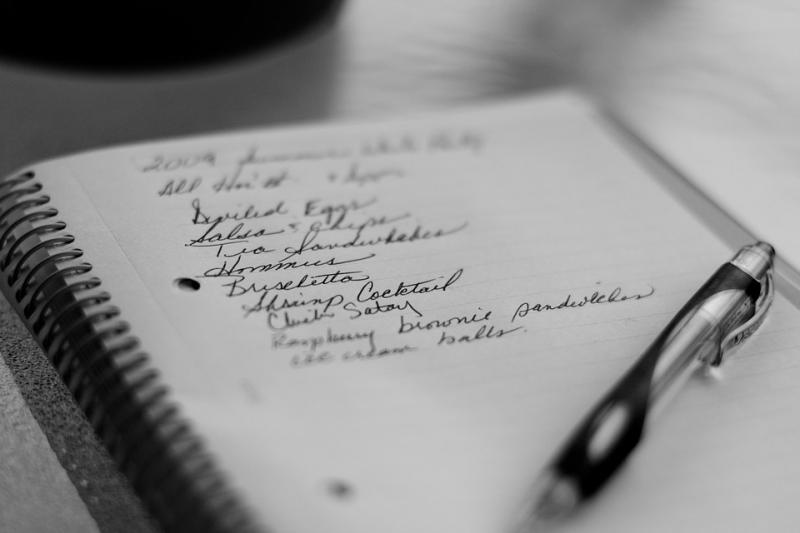 2009 Summer White Party
All Hor'
Deviled Eggs
Salsa & Chips
Tea Sandwhiches
Hommus
Bruschetta
Shrimp Cocktail
Satay
Raspberry brownie sandwiches
ice cream balls